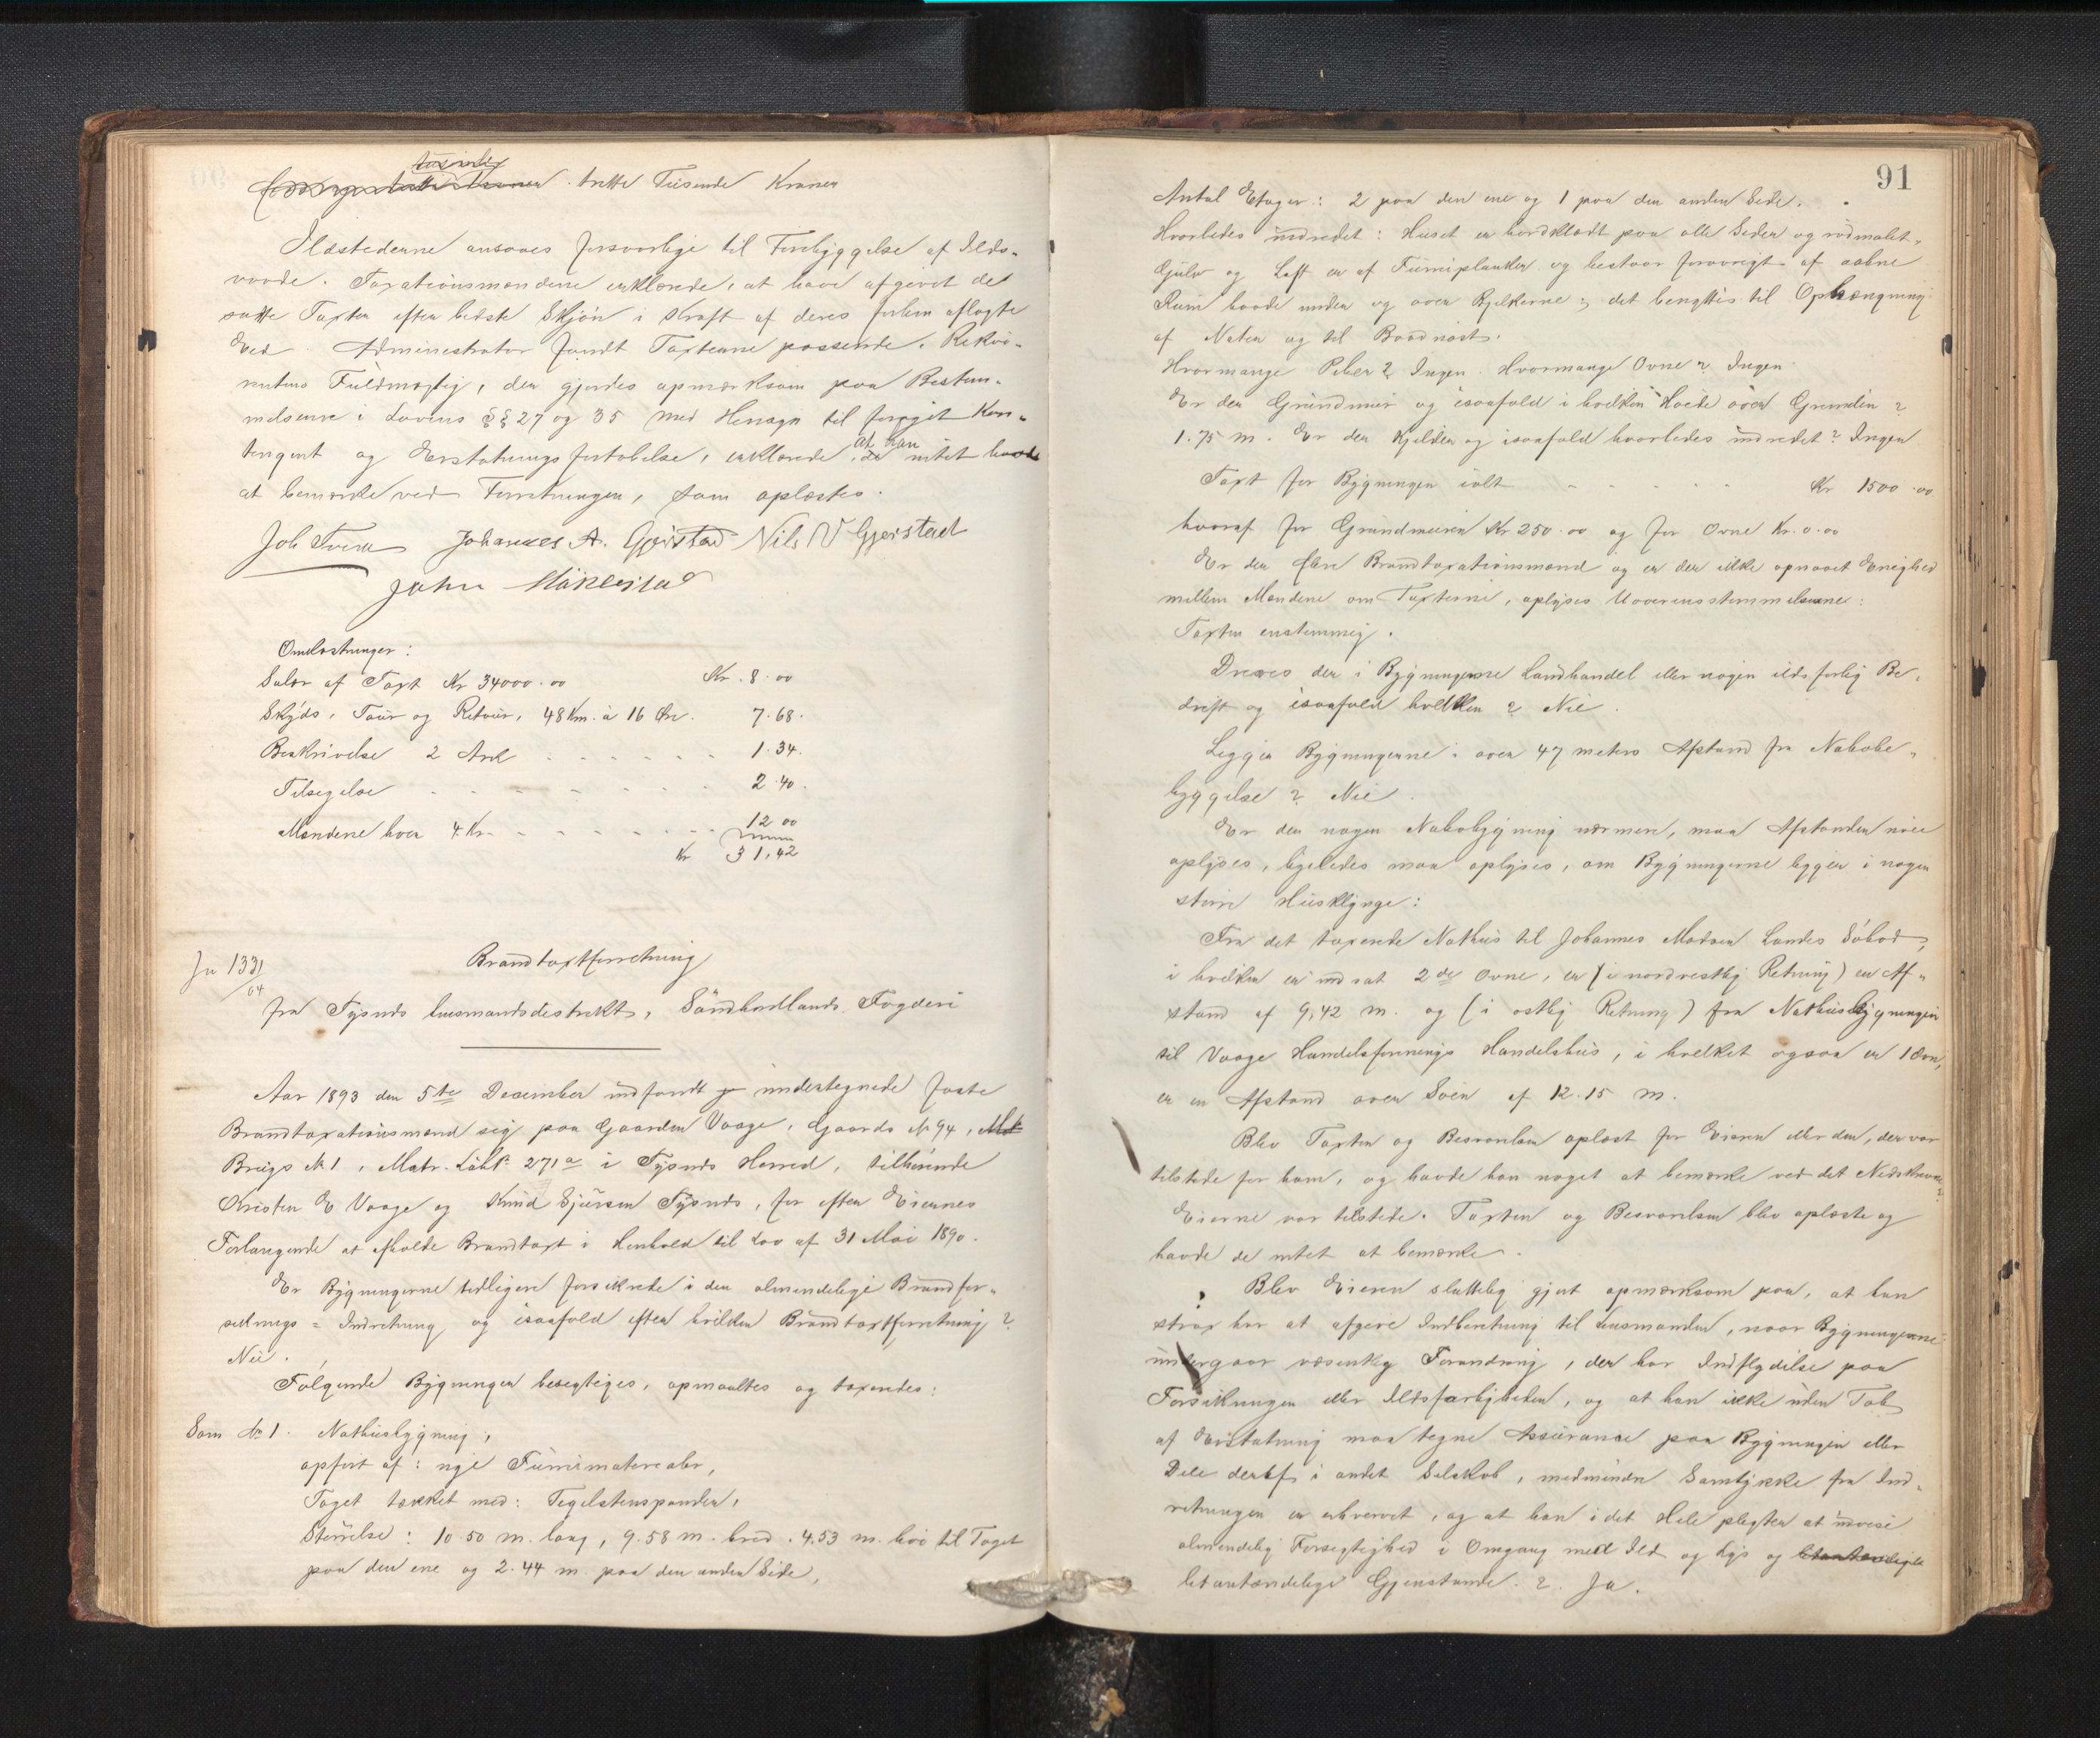 tusinde
trette Tusende Kroner
Ildstederne ansaaes forsvarlige til Forebyggelse af Ilds-
vaade. Taxationsmændene erklærede, at have afgivet det
satte Taxter efter bedste Skjön i Kraft af deres forhen aflagte
Eed Administrator fandt Taxterne passende. Rekvi-
rentens Fuldmægtig, der gjordes opmærksom paa Bestem-
melserne i Lovens §§ 27 og 35 med Hensyn til forøget Kon-
tingent og Erstatnings fortabelse, erklærede, at han intet havde
at bemærke ved Forretningen, som oplæstes.
Joh Tveit Johannes A. Gjerstad Nils N Gjerstad
John
Omkostninger:
Salær af Taxt Kr 34000.00 Kr. 8.00
Skyds, Tour og Retour, 48 Km. à 16 Øre. 7.68.
Beskrivelse 2 Ark 1.34.
Tilsigelse 2.40.
Mændene hver 4 Kr. 12 00
Kr 31,42
Jn 1331/04
Brandtaxtforretning
fra Tysnes Lensmandsdistrikt, Söndhordlands Fogderi
Aar 1893 den 5te December indfandt undertegnede faste
Brandtaxationsmænd sig paa Gaarden Vaage, Gaards № 94,
Brugs № 1, Matr. Löbe 271a i Tysnes Herred, tilhørende
Kristen E Vaage og Knud Sjursen Tysnes, for efter Eiernes
Forlangende at afholde Brandtaxt i Henhold til Lov af 31 Mai 1890.
Er Bygningerne tidligere forsikrede i den almindelige Brandfor-
sikrings = Indretning og isaafald efter hvilken Brandtaxtforretning?
Nei.
Følgende Bygninger besigtiges, opmaaltes og taxeredes:
Som № 1. Nothusbygning,
opført af: nye Furumaterialer,
Taget tækket med: Teglstenspander,
Størrelse: 10.50 m. lang, 9.58 m. bred. 4,53 m. høi til Taget
paa den ene og 2.44 m. paa den anden Side,
91
Antal Etager: 2 paa den ene og 1 paa den anden Side.
Hvorledes indredet: Huset er bordklædt paa alle Sider og rödmalet,
Gulv og Loft er af Furuplanker og bestaar forøvrigt af aabne
Rum baade under og over Bjelkerne; det benyttes til Ophængning
af Nøter og til Baadnøst.
Hvormange Piber? Ingen. Hvormange Ovne? Ingen
Er der Grundmur og isaafald i hvilken Høide over Grunden?
1.75 m. Er der Kjelder og isaafald hvorledes indredet? Ingen
Taxt for Bygningen ialt Kr 1500.00
hvoraf for Grundmuren Kr. 250.00 og for Ovne Kr. 0.00
Er der flere Brandtaxationsmænd og er der ikke opnaaet Enighed
mellem Mændene om Taxterne, oplyses Uoverensstemmelserne:
Taxten enstemmig.
Drives der i Bygningerne Landhandel eller nogen ildsfarlig Be-
drift og isaafald hvilken? Nei.
Ligger Bygningerne i over 47 meters Afstand fra Nabobe-
byggelse? Nei.
Er der nogen Nabobygning nærmere, maa Afstanden nøie
oplyses, ligeledes maa oplyses, om Bygningerne ligger i nogen
större Husklynge:
Fra det taxerede Nothus til Johannes Madsen Landes Söbod,
i hvilken er indsat 2de Ovne, er (i nordvestlig Retning) en Af-
stand af 9,42 m. og (i østlig Retning) fra Nothusbygningen
til Vaage Handelsforenings Handelshus, i hvilket ogsaa er 1 Ovn,
er en Afstand over Søen af 12.15 m.
Blev Taxten og Besvarelsen oplæst for Eieren eller den, der var
tilstede for ham, og havde han noget at bemærke ved det Nedskrevne?
Eierne var tilstede. Taxten og Besvarelsen blev oplæste og
havde de intet at bemærke.
Blev Eieren sluttelig gjort opmærksom paa, at han
strax har at afgive Indberetning til Lensmanden, naar Bygningerne
undergaar væsentlig Forandring, der har Indflydelse paa
Forsikringen eller Ildsfarligheden, og at han ikke uden Tab
af Erstatning maa tegne Assurance paa Bygningen eller
Dele deraf i andet Selskab, medmindre Samtykke fra Ind-
retningen er erhvervet, og at han i det Hele pligter at udvise
almindelig Forsigtighed i Omgang med Ild og Lys og
letantændelige Gjenstande.? Ja.